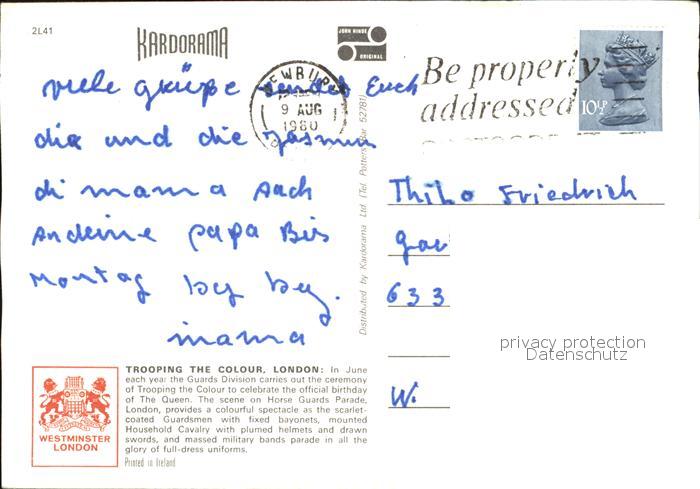 2L41
KARDORAMA
JOHN HINDE
ORIGINAL
NEWBURY
9 AUG
1980
Be properly
addressed
10½P
viele grüße sendet Euch
dia und die Jasmin
di mama Sach
Andeine papa Bis
Montag bey bey.
mama
Thilo Friedrich
633
W.
Distributed by Kardorama Ltd. (Tel. Potters Bar 52781)
privacy protection
Datenschutz
WESTMINSTER
LONDON
TROOPING THE COLOUR, LONDON: In June
each year the Guards Division carries out the ceremony
of Trooping the Colour to celebrate the official birthday
of The Queen. The scene on Horse Guards Parade,
London, provides a colourful spectacle as the scarlet-
coated Guardsmen with fixed bayonets, mounted
Household Cavalry with plumed helmets and drawn
swords, and massed military bands parade in all the
glory of full-dress uniforms.
Printed in Ireland